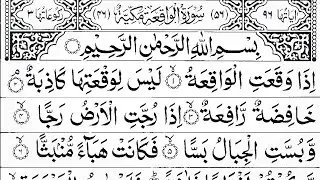 اٰيَاتُهَا ٩٦ (٥٦) سُوْرَةُ الْوَاقِعَةِ مَكِّيَّةٌ (٤٦) رُكُوْعَاتُهَا ٣
بِسْمِ اللّٰهِ الرَّحْمٰنِ الرَّحِيْمِ
اِذَا وَقَعَتِ الْوَاقِعَةُ ۙ ١ لَيْسَ لِوَقْعَتِهَا كَاذِبَةٌ ۘ ٢
خَافِضَةٌ رَّافِعَةٌ ۙ ٣ اِذَا رُجَّتِ الْاَرْضُ رَجًّا ۙ ٤
وَّبُسَّتِ الْجِبَالُ بَسًّا ۙ ٥ فَكَانَتْ هَبَآءً مُّنْۢبَثًّا ۙ ٦